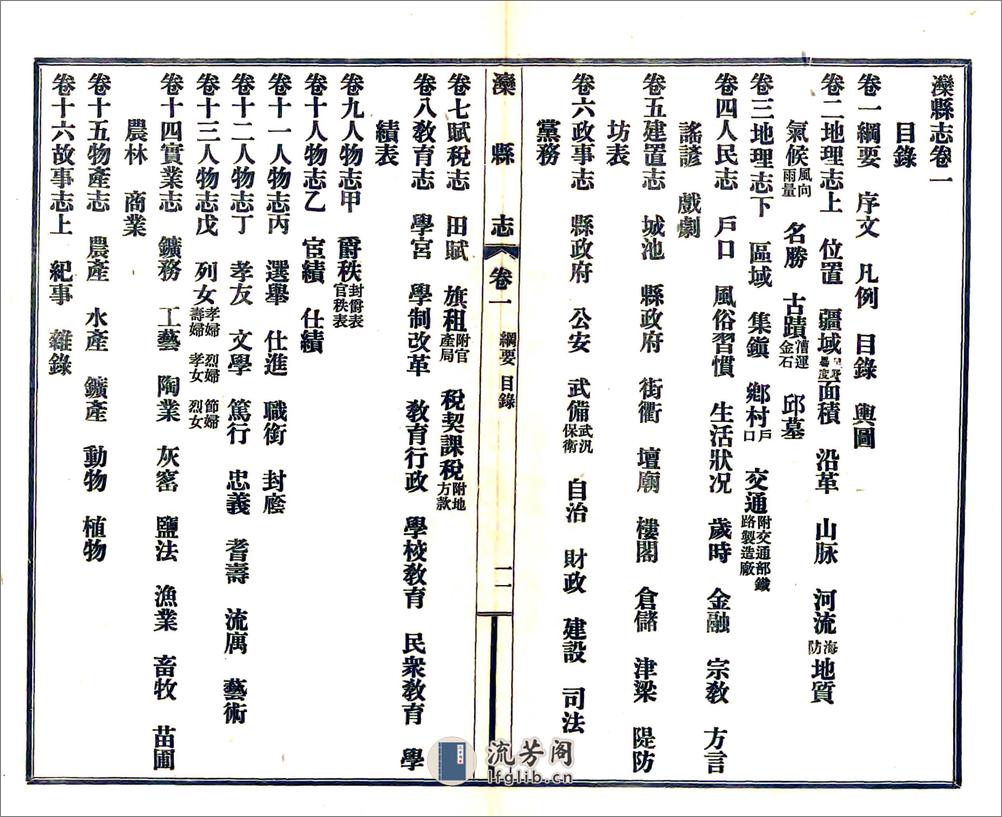 灤縣志卷一
目錄
卷一綱要　序文　凡例　目錄　輿圖
卷二地理志上　位置　疆域　面積　沿革　山脉　河流海防　地質
氣候風向雨量　名勝　古蹟漕運金石　邱墓
卷三地理志下　區域　集鎮　鄉村戶口　交通附交通部鐵路製造廠
卷四人民志　戶口　風俗習慣　生活狀况　歲時　金融　宗教　方言
謠諺　戲劇
卷五建置志　城池　縣政府　街衢　壇廟　樓閣　倉儲　津梁　隄防
坊表
卷六政事志　縣政府　公安　武備武汛保衛　自治　財政　建設　司法
黨務
灤縣志　卷一　綱要　目錄　一一
卷七賦稅志　田賦　旗租附官產局　稅契課稅附地方款
卷八教育志　學宮　學制改革　教育行政　學校教育　民衆教育　學
績表
卷九人物志甲　爵秩封爵表官秩表
卷十人物志乙　宦績　仕績
卷十一人物志丙　選舉　仕進　職銜　封廕
卷十二人物志丁　孝友　文學　篤行　忠義　耆壽　流寓　藝術
卷十三人物志戊　列女孝婦　烈婦　節婦壽婦　孝女　烈女
卷十四實業志　鑛務　工藝　陶業　灰窰　鹽法　漁業　畜牧　苗圃
農林　商業
卷十五物產志　農產　水產　鑛產　動物　植物
卷十六故事志上　紀事　雜錄
流芳阁
lfglib.cn